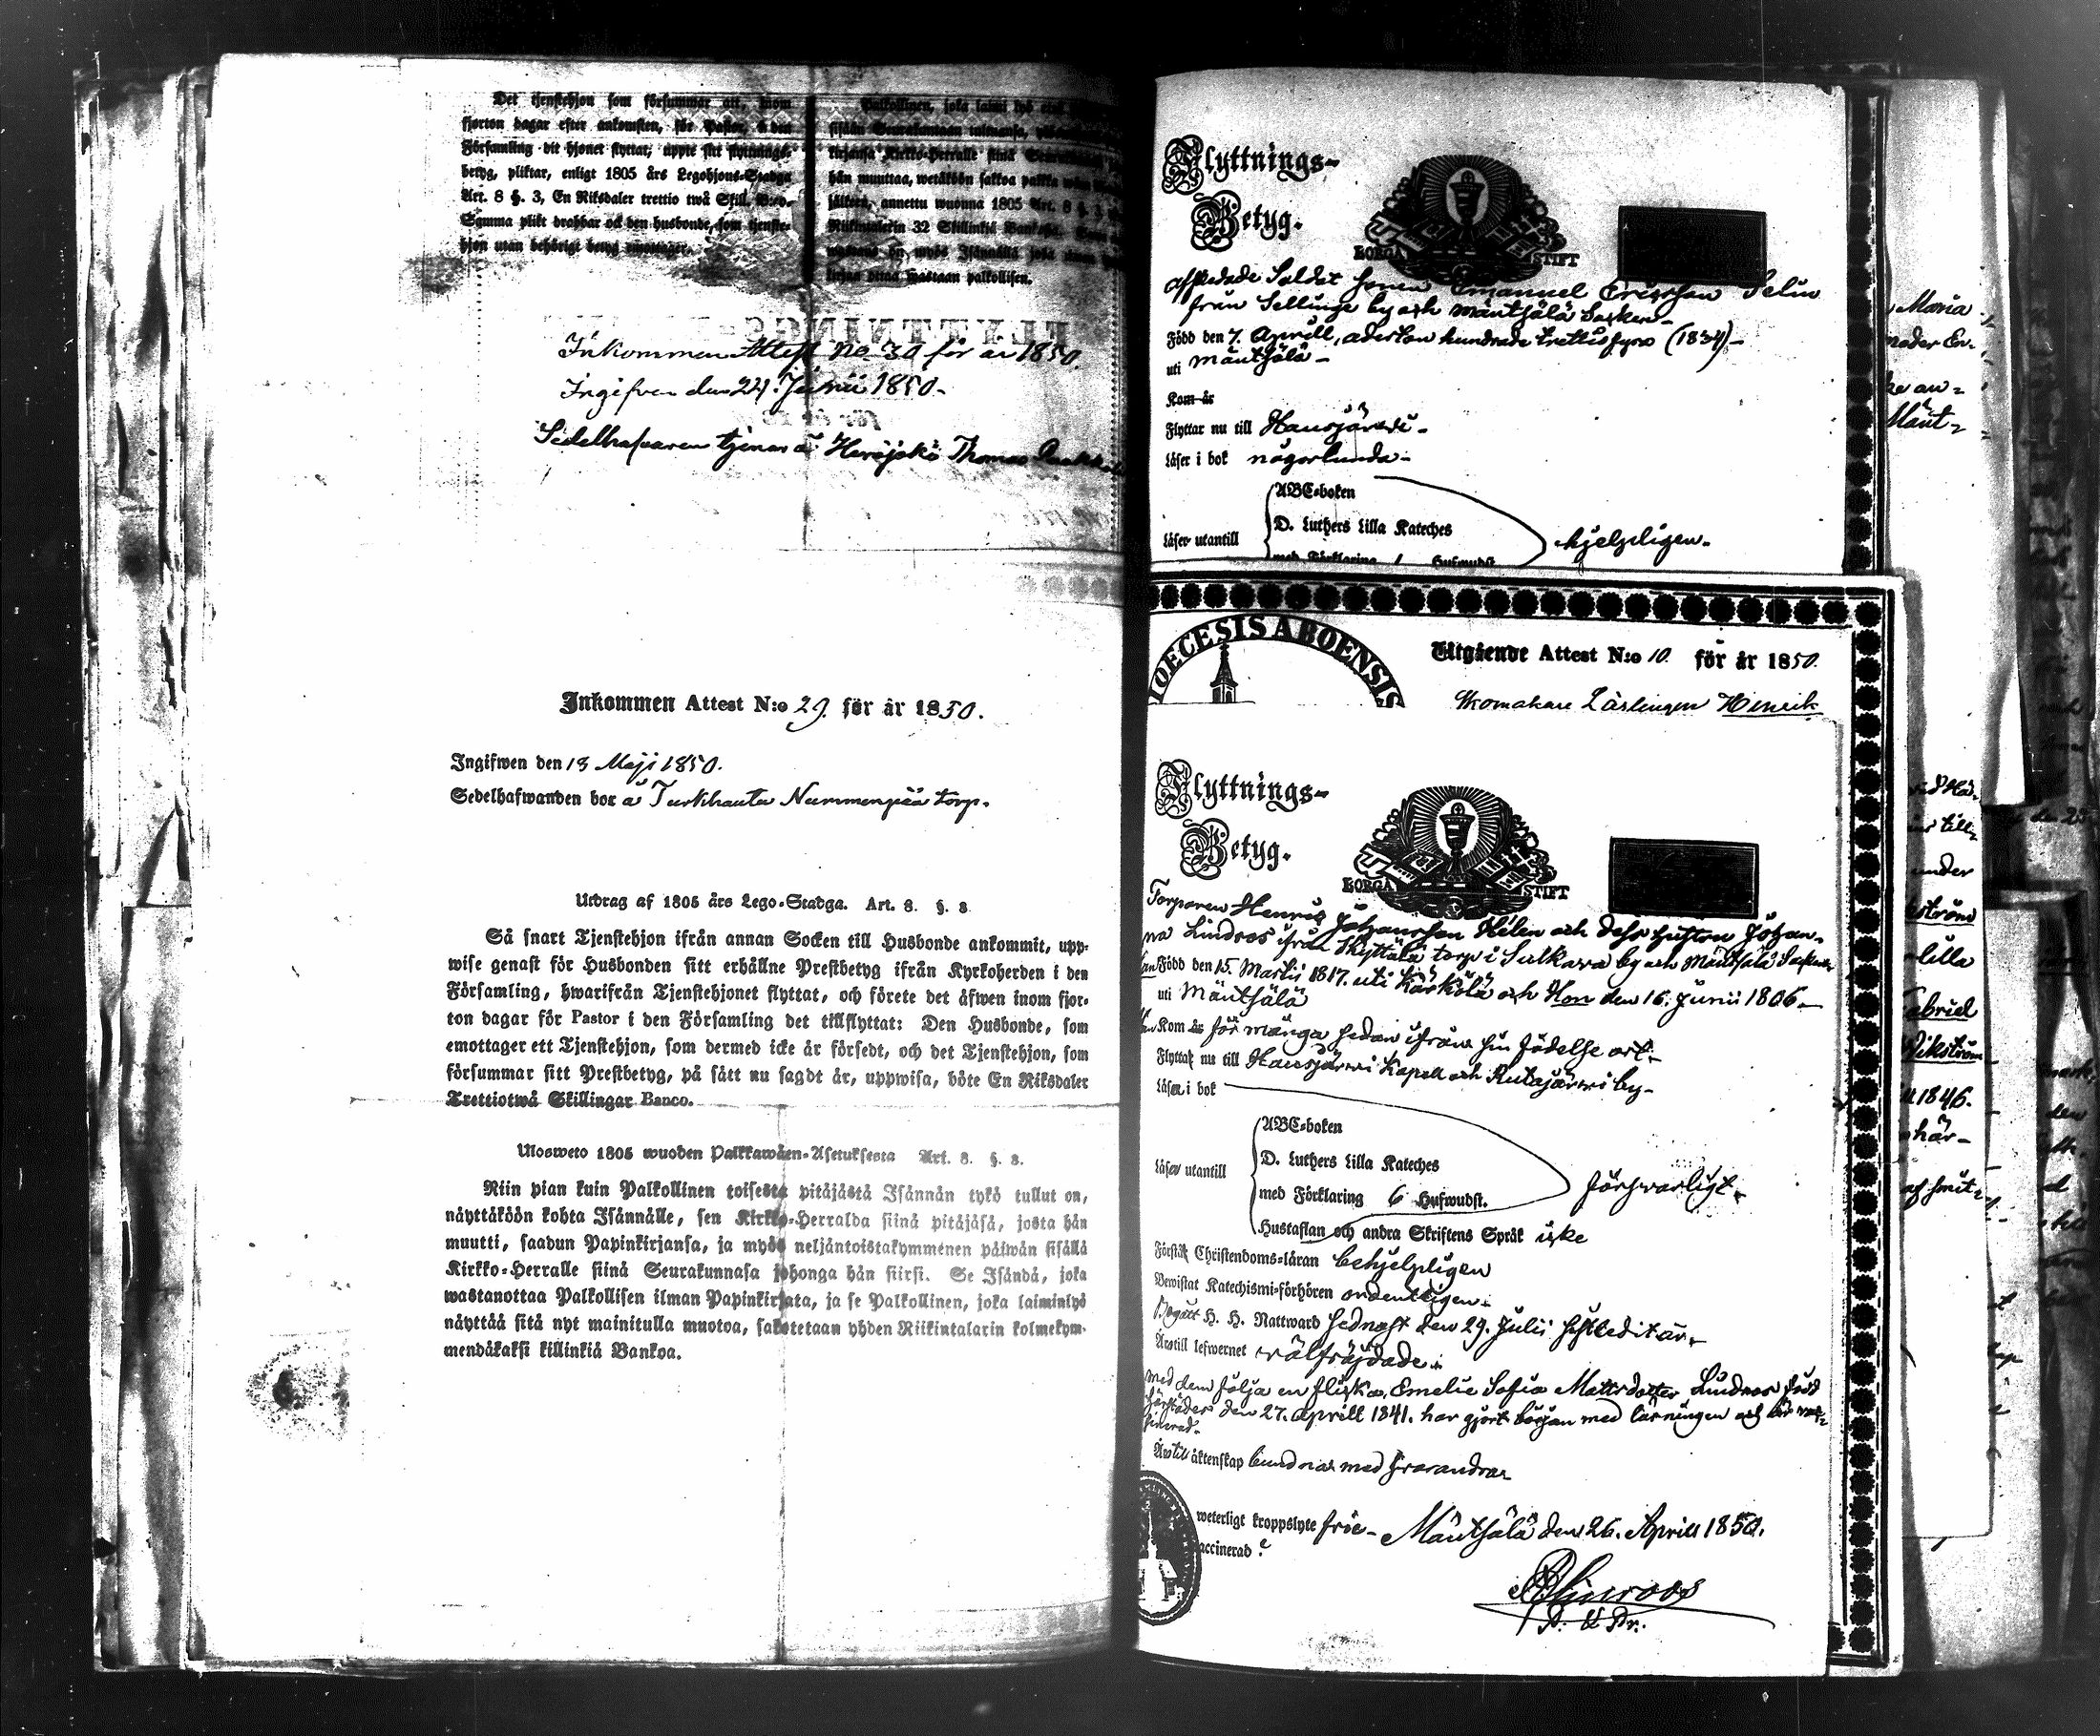 Det tjenstehjon som försummar att, inom
fjorton dagar efter ankomsten, för Pastor, i den
Församling dit hjonet flyttat, uppte sitt flyttnings-
betyg, pliktar, enligt 1805 års Legohjons-Stadga
Art. 8 §. 3, En Riksdaler trettio twå Skill. B:co.
Samma plikt drabbar ock den husbonde, som tjenste-
hjon utan behörigt betyg emottager.
Palkollinen, joka laimi lyö
sisään Seurakuntaan tultuansa,
kirjansa Kirkko-Herralle siinä
hän muuttaa, wetäköön sakkoa
annettu wuonna 1805 Art. 8 §. 3
Riikintalerin 32 Skillinkiä Bankosa.
on myös Isännällä joka ilman
kirjaa ottaa wastaan palkollisen.
Inkommen Attest No 30 för år 1850.
Ingifven den 24. Junii 1850.
Sedelhafvaren tjenar å Herajoki Thomas
Inkommen Attest N:o 29. för år 1850.
Ingifwen den 13 Maji 1850.
Sedelhafwanden bor å Turkhauta Nummenpää torp.
Utdrag af 1805 års Lego-Stadga. Art. 8. §. 3
Så snart Tjenstehjon ifrån annan Socken till Husbonde ankommit, upp-
wise genast för Husbonden sitt erhållne Prestbetyg ifrån Kyrkoherden i den
Församling, hwarifrån Tjenstehjonet flyttat, och förete det äfwen inom fjor-
ton dagar för Pastor i den Församling det tillflyttat: Den Husbonde, som
emottager ett Tjenstehjon, som dermed icke är försedt, och det Tjenstehjon, som
försummar sitt Prestbetyg, på sätt nu sagdt är, uppwisa, böte En Riksdaler
Trettiotwå Skillingar Banco.
Ulosweto 1805 wuoden Palkkawäen-Asetuksesta Art. 8. §. 3.
Niin pian kuin Palkollinen toisesta pitäjästä Isännän tykö tullut on,
näyttäköön kohta Isännälle, sen Kirkko-Herralda siinä pitäjäsä, josta hän
muutti, saadun Papinkirjansa, ja myös neljäntoistakymmenen päiwän sisällä
Kirkko-Herralle siinä Seurakunnasa johonga hän siirsi. Se Isändä, joka
wastanottaa Palkollisen ilman Papinkirjata, ja se Palkollinen, joka laiminlyö
näyttää sitä nyt mainitulla muotoa, sakotetaan yhden Riikintalarin kolmekym-
mendäkaksi killinkiä Bankoa.
Flyttnings-
Betyg.
BORGÅ STIFT
afskedade Soldat sonen Emanuel Ericsson Selin
från Sellinge by och Mäntsälä Socken
Född den 7. Aprill, aderton hundrade trettiofyra (1834)
uti Mäntsälä
Kom år
Flyttar nu till Hausjärvi
Läser i bok någorlunda
Läser utantill
ABC-boken
D. Luthers Lilla Kateches
med Förklaring Hufwudst.
hjelpligen.
DIOECESIS ABOENSIS
Utgående Attest N:o 10. för år 1850.
Skomakare Lärlingen Henrik
Flyttnings-
Betyg.
BORGÅ STIFT
Torparen Henric Johansson Helen och dess hustru Johan-
na Lindroos ifrån Skyttälä torp i Sulkava by och Mäntsälä Socken
Född den 15. Martii 1817. uti Kärkölä och Hon den 16. Junii 1806.
uti Mäntsälä
Kom år för många sedan ifrån sin födelse ort
Flyttar nu till Hausjärvi Kapell och Rutajärvi by
Läser i bok
Läser utantill
ABC-boken
D. Luthers Lilla Kateches
med Förklaring 6 Hufwudst.
försvarligt
Hustaflan och andra Skriftens Språk icke
Förstår Christendoms-läran behjelpligen
Bewistat Katechismi-förhören ordentligen
Begått H. H. Nattward sednast den 29. Julii sistledit år
Är till lefwernet välfräjdade
med dem följa en flicka, Emelie Sofia Mattsdotter Lindroos född
härstädes den 27. Aprill 1841. har gjort början med läsningen och är vac-
cinerad
Är till äktenskap bundna med hvarandra
weterligt kroppslyte frie
Mäntsälä den 26. Aprill 1850.
accinerad
Maria
Mänt-
under
ström
lilla
Gabriel
Wikström
1846.